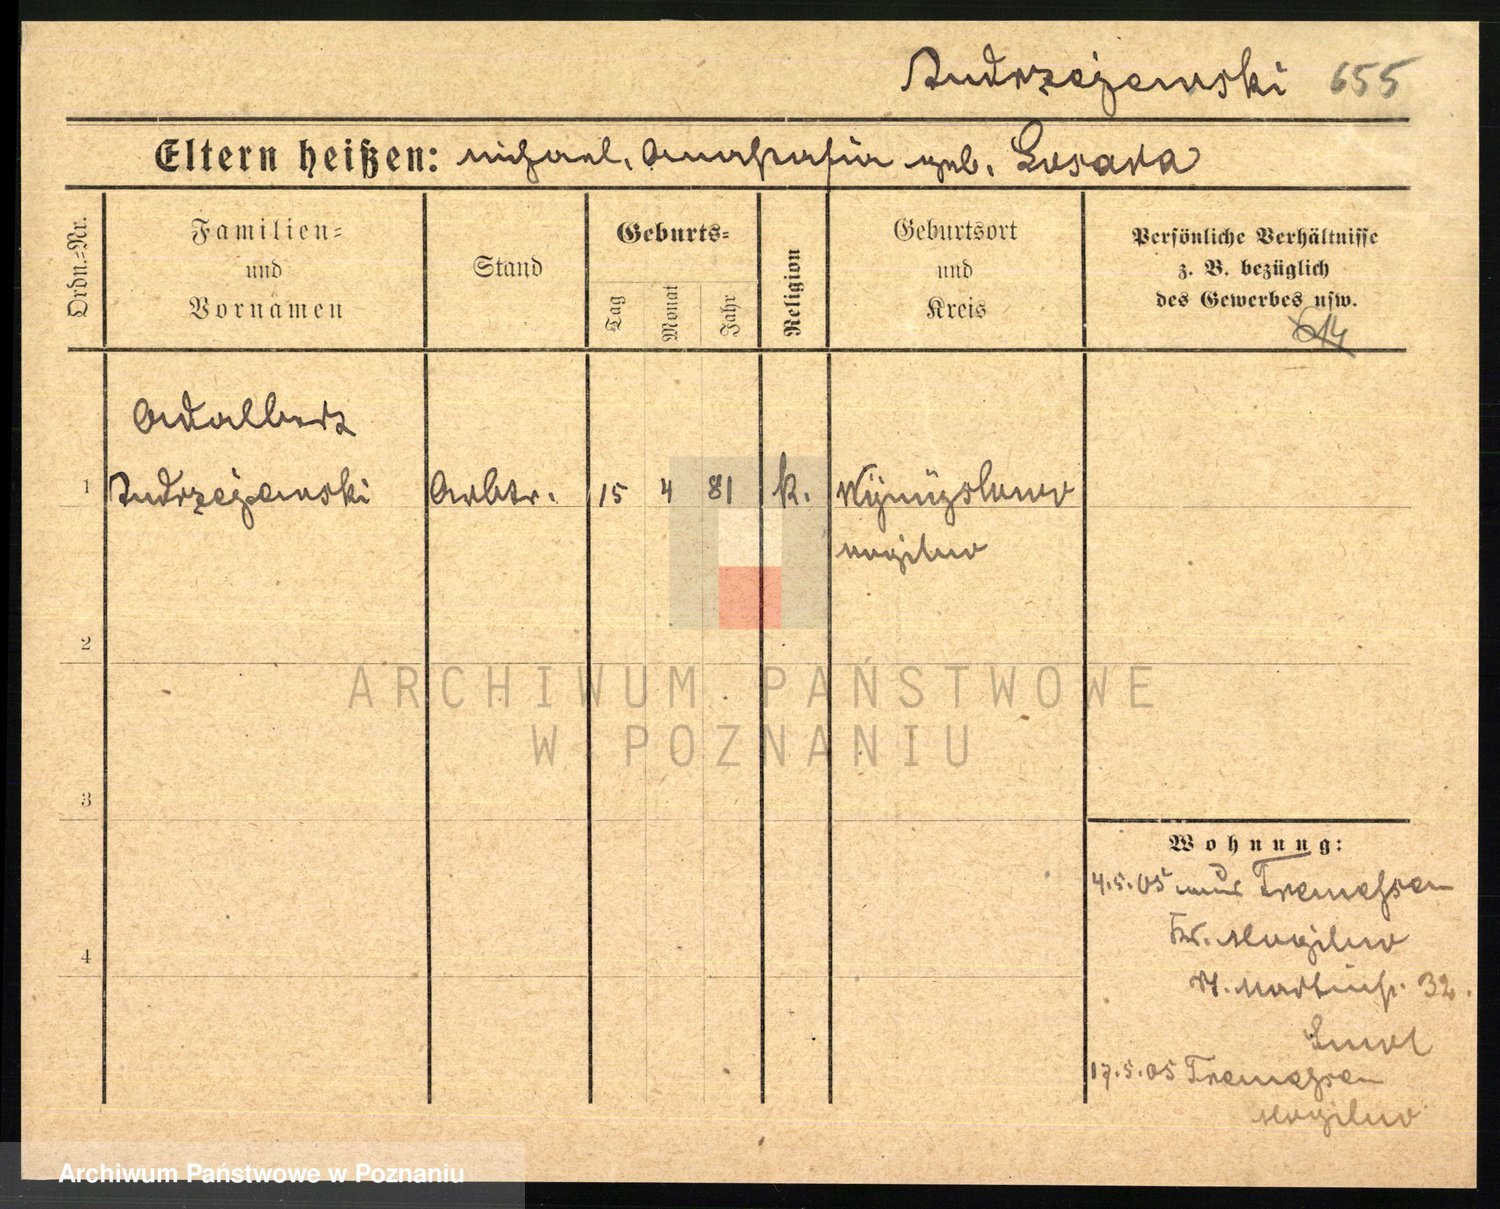 Andrzejewski 655
Eltern heißen: Michael, Anastasia geb. Losara
Ordn.-Nr.
Familien-
und
Vornamen
Stand
Geburts-
Tag
Monat
Jahr
Religion
Geburtsort
und
Kreis
Persönliche Verhältnisse
z. B. bezüglich
des Gewerbes usw.
614
Adalbert
1 Andrzejewski Arbtr. 15 4 81 k.
Mogilno
2
ARCHIWUM PAŃSTWOWE
W POZNANIU
3
Wohnung:
4.5.05 aus Tremessen
Kr. Mogilno
4
St. Martinst. 32.
17.5.05 Tremessen
Mogilno
Archiwum Państwowe w Poznaniu